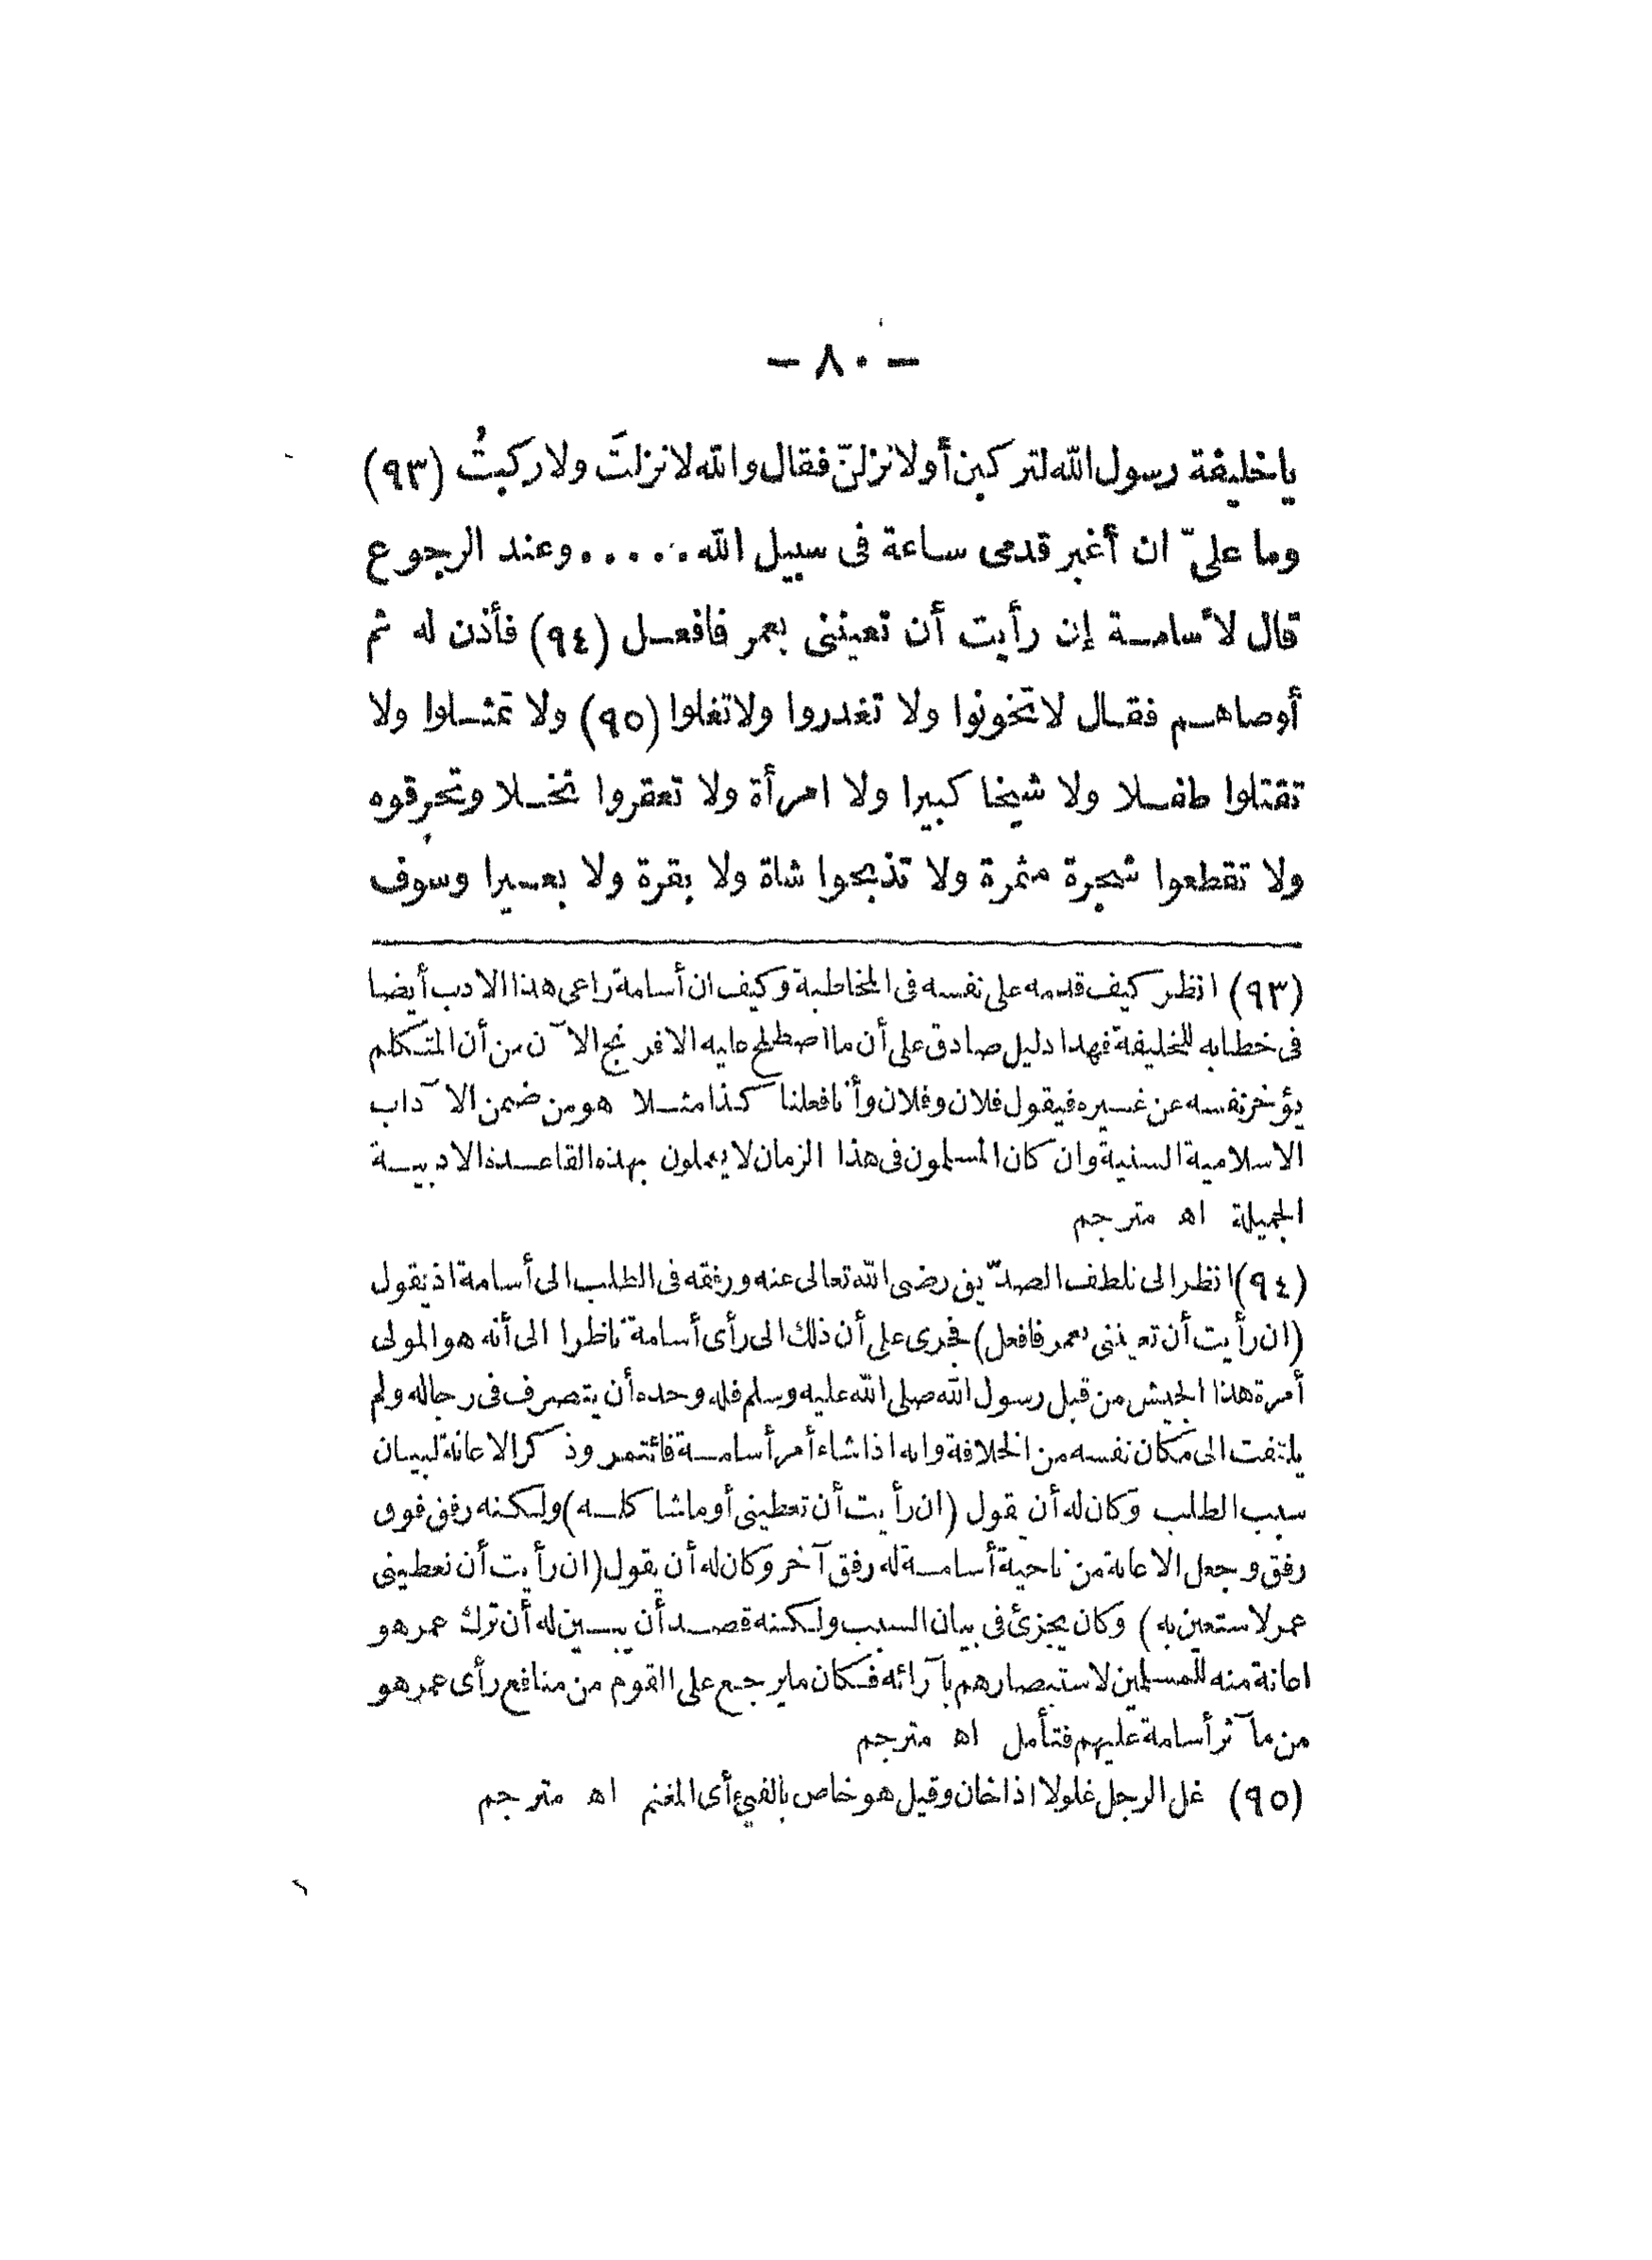 — ٨٠ —
ياخليفة رسول الله لتركبن أو لانزلنّ فقال والله لانزلتَ ولاركبتُ (٩٣)
وما عليّ ان أغبر قدمى ساعة فى سبيل الله ...... وعند الرجوع
قال لأسامة إن رأيت أن تعيننى بعمر فافعل (٩٤) فأذن له ثم
أوصاهم فقال لاتخونوا ولا تغدروا ولاتغلوا (٩٥) ولا تمثلوا ولا
تقتلوا طفلا ولا شيخا كبيرا ولا امرأة ولا تعقروا نخلا وتحرقوه
ولا تقطعوا شجرة مثمرة ولا تذبحوا شاة ولا بقرة ولا بعيرا وسوف
(٩٣) انظر كيف قدمه على نفسه فى المخاطبة وكيف ان أسامة راعى هذا الادب أيضا
فى خطابه للخليفة فهذا دليل صادق على أن ما اصطلح عليه الافرنج الآن من أن المتكلم
يؤخر نفسه عن غيره فيقول فلان وفلان وأنا فعلنا كذا مثلا هو من ضمن الآداب
الاسلامية السنية وان كان المسلمون فى هذا الزمان لا يعملون بهذه القاعدة الادبية
الجميلة اه مترجم
(٩٤) انظر الى تلطف الصدّيق رضى الله تعالى عنه ورفقه فى الطلب الى أسامة اذ يقول
(ان رأيت أن تعيننى بعمر فافعل) فجرى على أن ذلك الى رأى أسامة ناظرا الى أنه هو المولى
أمرة هذا الجيش من قبل رسول الله صلى الله عليه وسلم فله وحده أن يتصرف فى رجاله ولم
يلتفت الى مكان نفسه من الخلافة وانه اذا شاء أمر أسامة فائتمر وذكر الاعانة لبيان
سبب الطلب وكان له أن يقول (ان رأيت أن تعطينى أو ماشاكله) ولكنه رفق فوق
رفق وجعل الاعانة من ناحية أسامة له رفق آخر وكان له أن يقول (ان رأيت أن تعطينى
عمر لاستعين به) وكان يجزئ فى بيان السبب ولكنه قصد أن يبين له أن ترك عمر هو
اعانة منه للمسلمين لاستبصارهم بآرائه فكان ما يرجع على القوم من منافع رأى عمر هو
من مآثر أسامة عليهم فتأمل اه مترجم
(٩٥) غل الرجل غلولا اذا خان وقيل هو خاص بالفىء أى المغنم اه مترجم